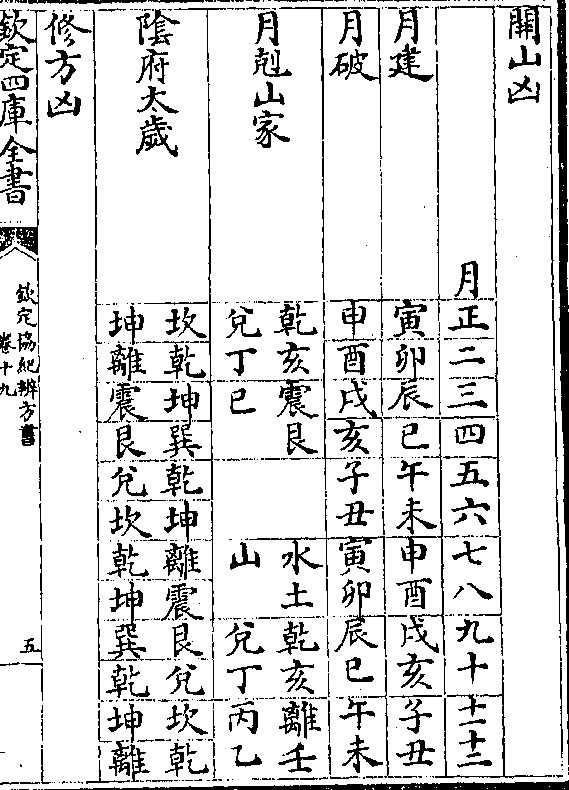 開山凶
月正二三四五六七八九十十一十二
月建 寅卯辰巳午未申酉戌亥子丑
月破 申酉戌亥子丑寅卯辰巳午未
月剋山家 乾亥震艮 水土乾亥離壬
兌丁巳 山兌丁丙乙
陰府太歲 坎乾坤巽乾坤離震艮兌坎乾
坤離震艮兌坎乾坤巽乾坤離
修方凶
欽定四庫全書
欽定協紀辨方書
卷十九
五